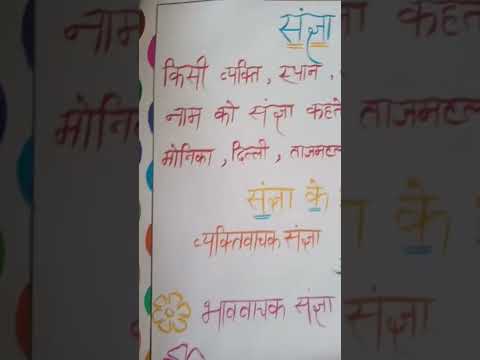 संज्ञा
किसी व्यक्ति, स्थान,
नाम को संज्ञा कहते
मोनिका, दिल्ली, ताजमहल
संज्ञा के
व्यक्तिवाचक संज्ञा
भाववाचक संज्ञा